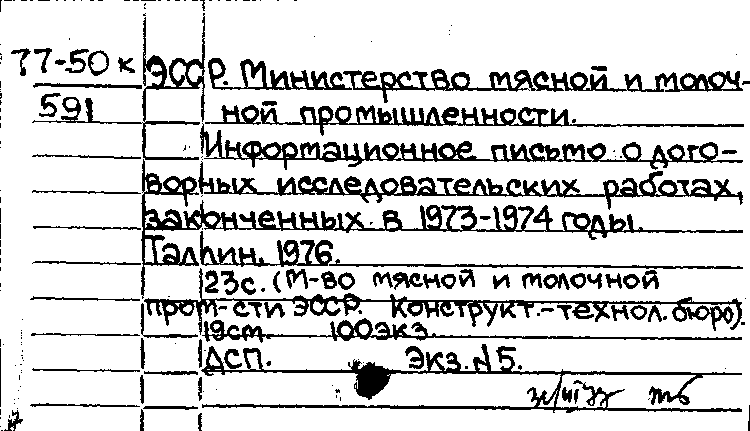 77-50к ЭССР. Министерство мясной и молоч-
591 ной промышленности.
Информационное письмо о дого-
ворных исследовательских работах,
законченных в 1973-1974 годы.
Таллин, 1976.
23с. (М-во мясной и молочной
пром-сти ЭССР. Конструкт.-технол. бюро).
19см. 100экз.
ДСП. Экз. №5.